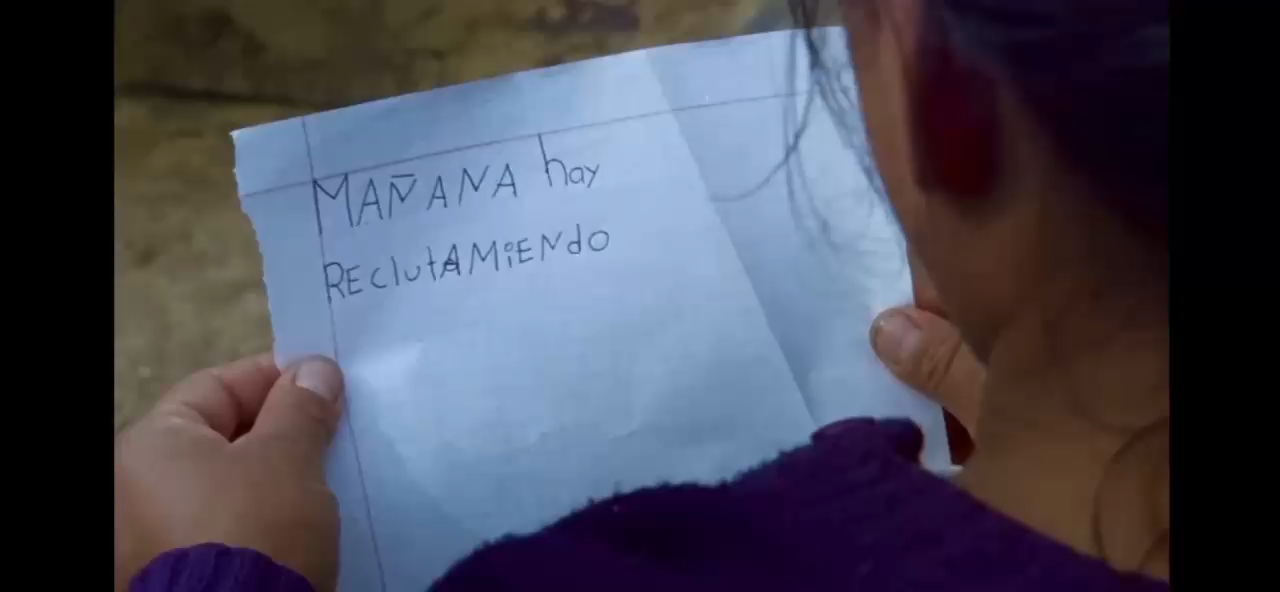 MAÑANA hay
REclutAMiENdO